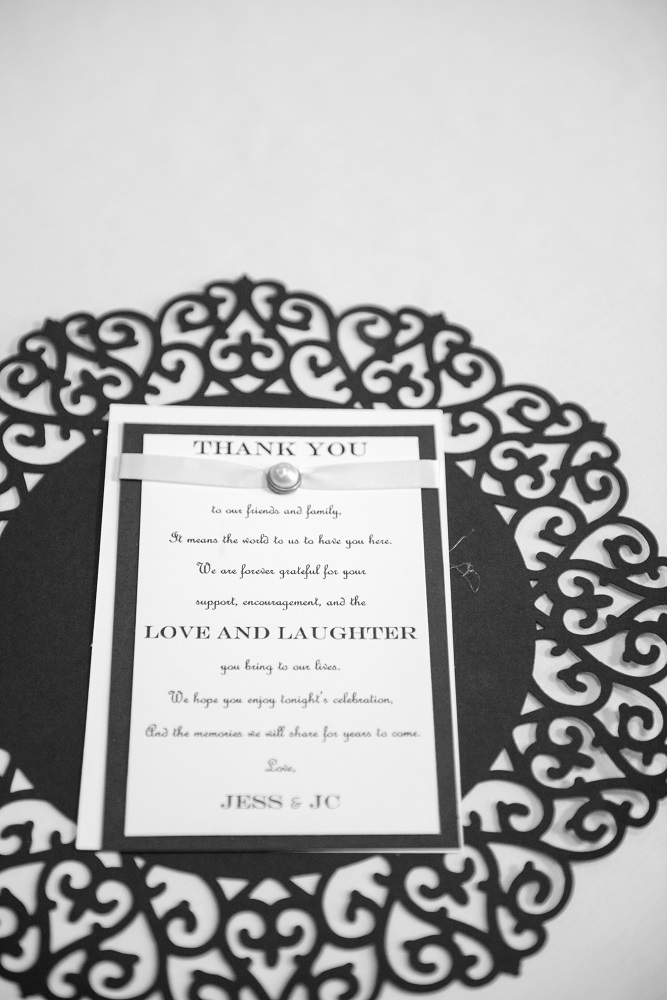 THANK YOU
to our friends and family,
It means the world to us to have you here.
We are forever grateful for your
support, encouragement, and the
LOVE AND LAUGHTER
you bring to our lives.
We hope you enjoy tonight's celebration,
And the memories we will share for years to come.
Love,
JESS & JC